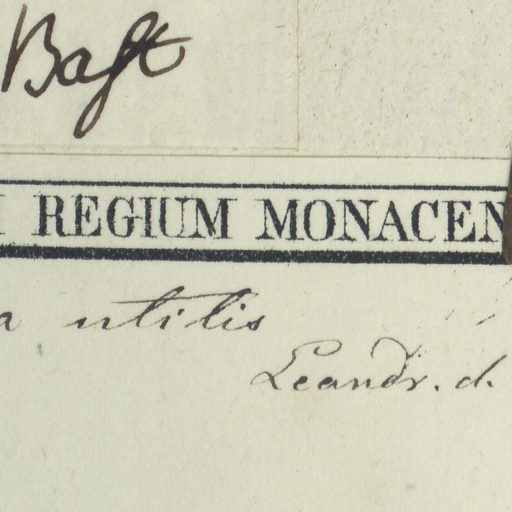 Bast
REGIUM MONACEN
a utilis
Leandr. d.